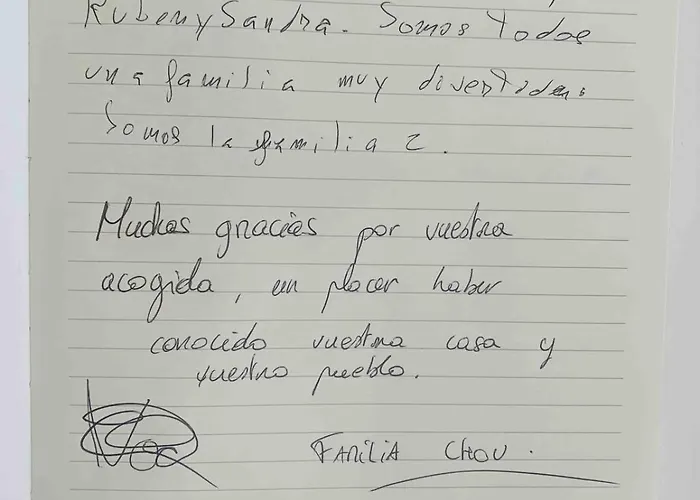 Ruben y Sandra. Somos todos
una familia muy divertida.
Somos la familia 2.
Muchas gracias por vuestra
acogida, un placer haber
conocido vuestra casa y
vuestro pueblo.
FAMILIA CHOU.